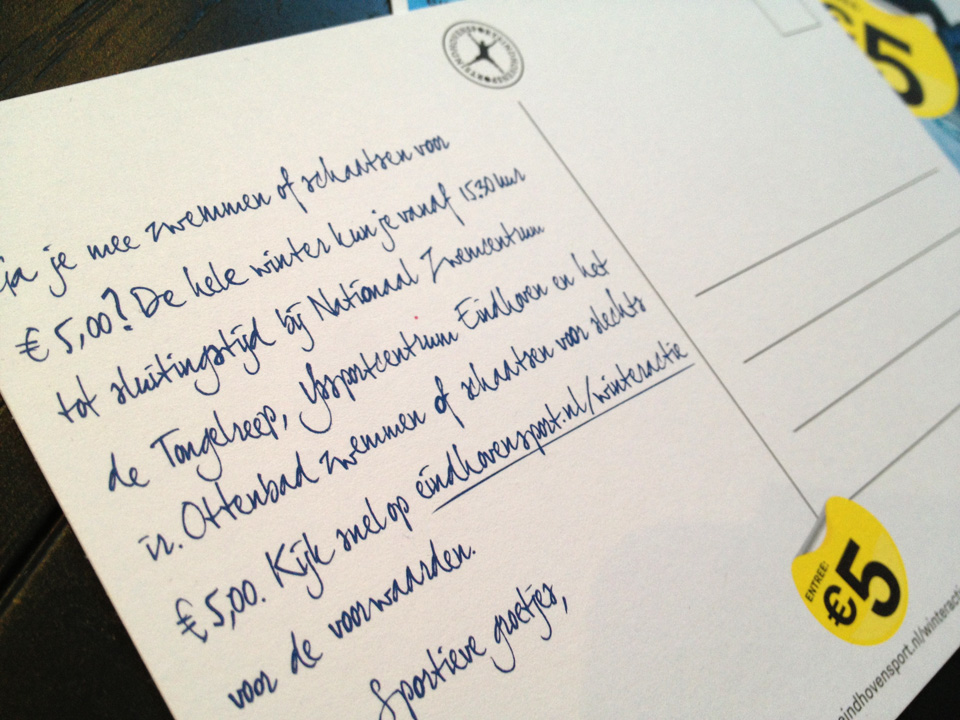 Ga je mee zwemmen of schaatsen voor
€ 5,00? De hele winter kun je vanaf 15.30 uur
tot sluitingstijd bij Nationaal Zwemcentrum
de Tongelreep, IJssportcentrum Eindhoven en het
ir. Ottenbad zwemmen of schaatsen voor slechts
€ 5,00. Kijk snel op eindhovensport.nl/winteractie
voor de voorwaarden.
Sportieve groetjes,
ENTREE:
€5
eindhovensport.nl/winteracti
ENTREE:
€5